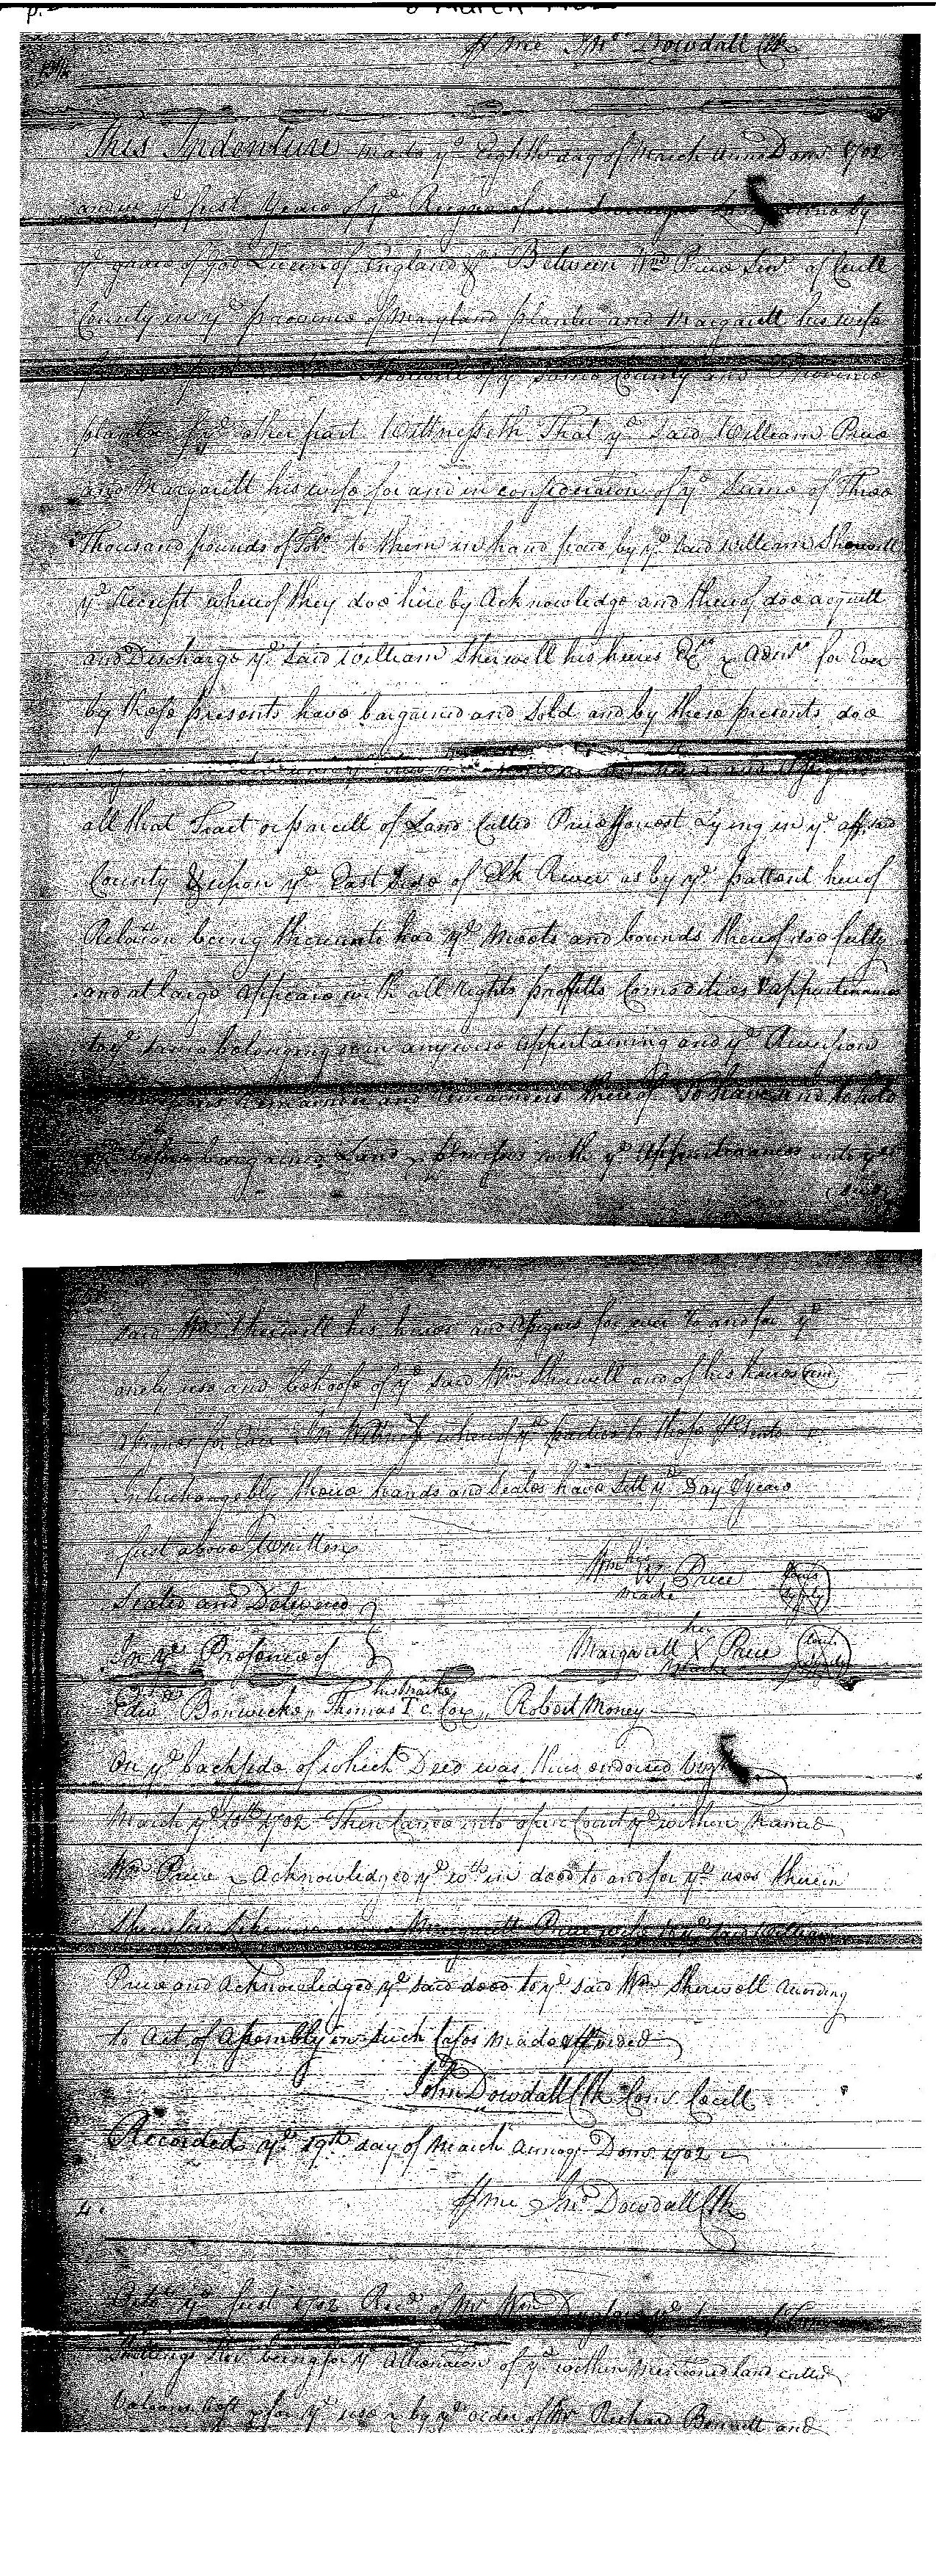 p.
8 March
p me Jno. Dowdall Clk
This Indenture made ye Eighth day of March Anno Dom 1702
and in ye first Yeare of ye Reigne of Soveraigne by
ye grace of God Queen of England &c Between Wm. Price Senr. of Cecill
County in ye province of Maryland planter and Margarett his wife
Sherwell of ye same County and Province
planter of ye other part Wittnesseth That ye said William Price
and Margarett his wife for and in consideration of ye Sume of Three
Thousand pounds of Tobo. to them in hand paid by ye said William Sherwell
ye Receipt whereof they doe hereby Acknowledge and thereof doe acquitt
and Discharge ye said William Sherwell his heires & Admrs for Ever
by these presents have bargained and sold and by these presents doe
and Assignes
all that Tract or parcell of Land Called Price fforest Lying in ye affsaid
County & upon ye East Side of Elk River as by ye pattent hereof
Relation being thereunto had ye Meets and bounds thereof doe fully
and at large appeare with all Rights proffitts Comodities & appurtinances
to ye same belonging or in anywise appertaining and ye Reversion
Remainder and Remainders thereof To have and to hold
before bargained Land & premisses with ye Appurtinances unto ye
said
said Wm Sherwell his heires and Assignes for ever To and for ye
onely use and behoofe of ye said Wm Sherwell and of his heires and
Assignes for Ever In Wittness whereof ye parties to these presents
Interchangebly theire hands and Seales have sett ye Day & yeare
first above Written
Sealed and Delivered
In ye Presence of
Wm W Price
marke
her
Margarett X Price
marke
his Marke
Edw Bonwicke, Thomas T C Cox, Robert Money
On ye backside of which Deed was thus endorsed
March ye 10th 1702 Then Came into open Court ye within Named
Wm Price & Acknowledged ye wthin deed to and for ye uses therein
Margarett Price wife to ye said William
Price and Acknowledged ye said deed to ye said Wm Sherwell according
to Act of Assembly in such Cases made & provided
John Dowdall Clk Com Cecill
Recorded ye 19th day of March Annoq Dom 1702
p me Jno. Dowdall Clk
ye first 1702 Recd of Mr Wm
Shillings being for ye Alienation of ye within Mentioned land called
for ye use & by ye order of Mr Richard Bennett and